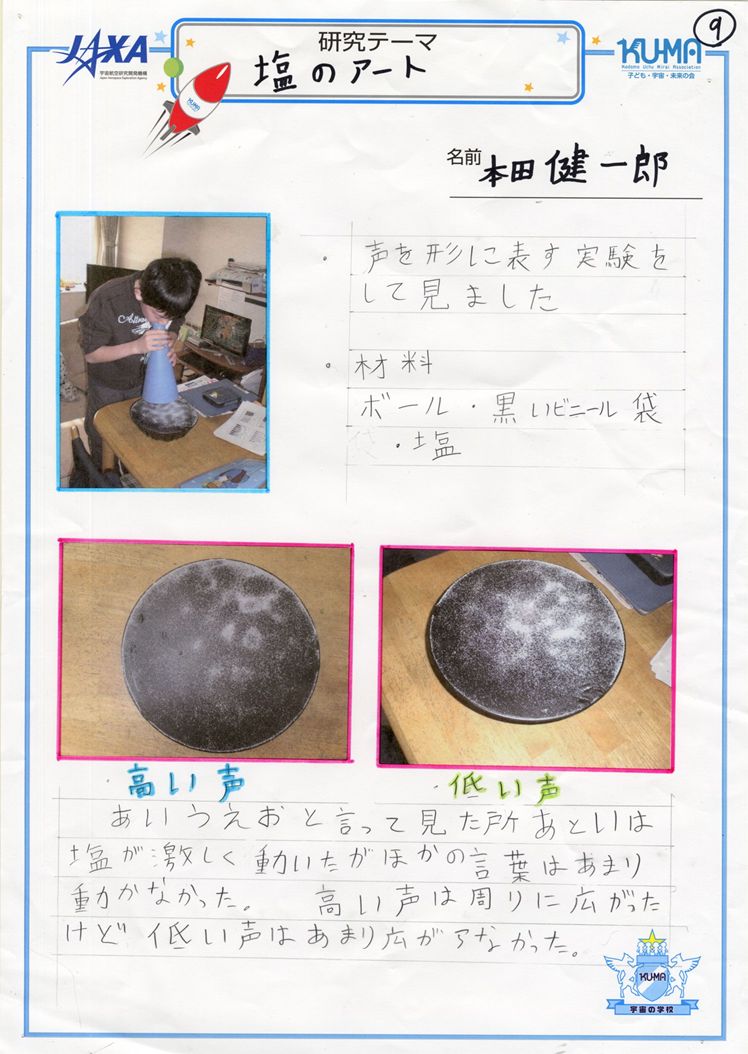 9
JAXA
宇宙航空研究開発機構
Japan Aerospace Exploration Agency
研究テーマ
塩のアート
KU-MA
Kodomo Uchu Mirai Association
子ども・宇宙・未来の会
KU-MA
名前 本田健一郎
・声を形に表す実験を
して見ました
・材料
ボール・黒いビニール袋
・塩
・高い声
・低い声
あいうえおと言って見た所あといは
塩が激しく動いたがほかの言葉はあまり
動かなかった。 高い声は周りに広がった
けど低い声はあまり広がらなかった。
KU-MA
宇宙の学校